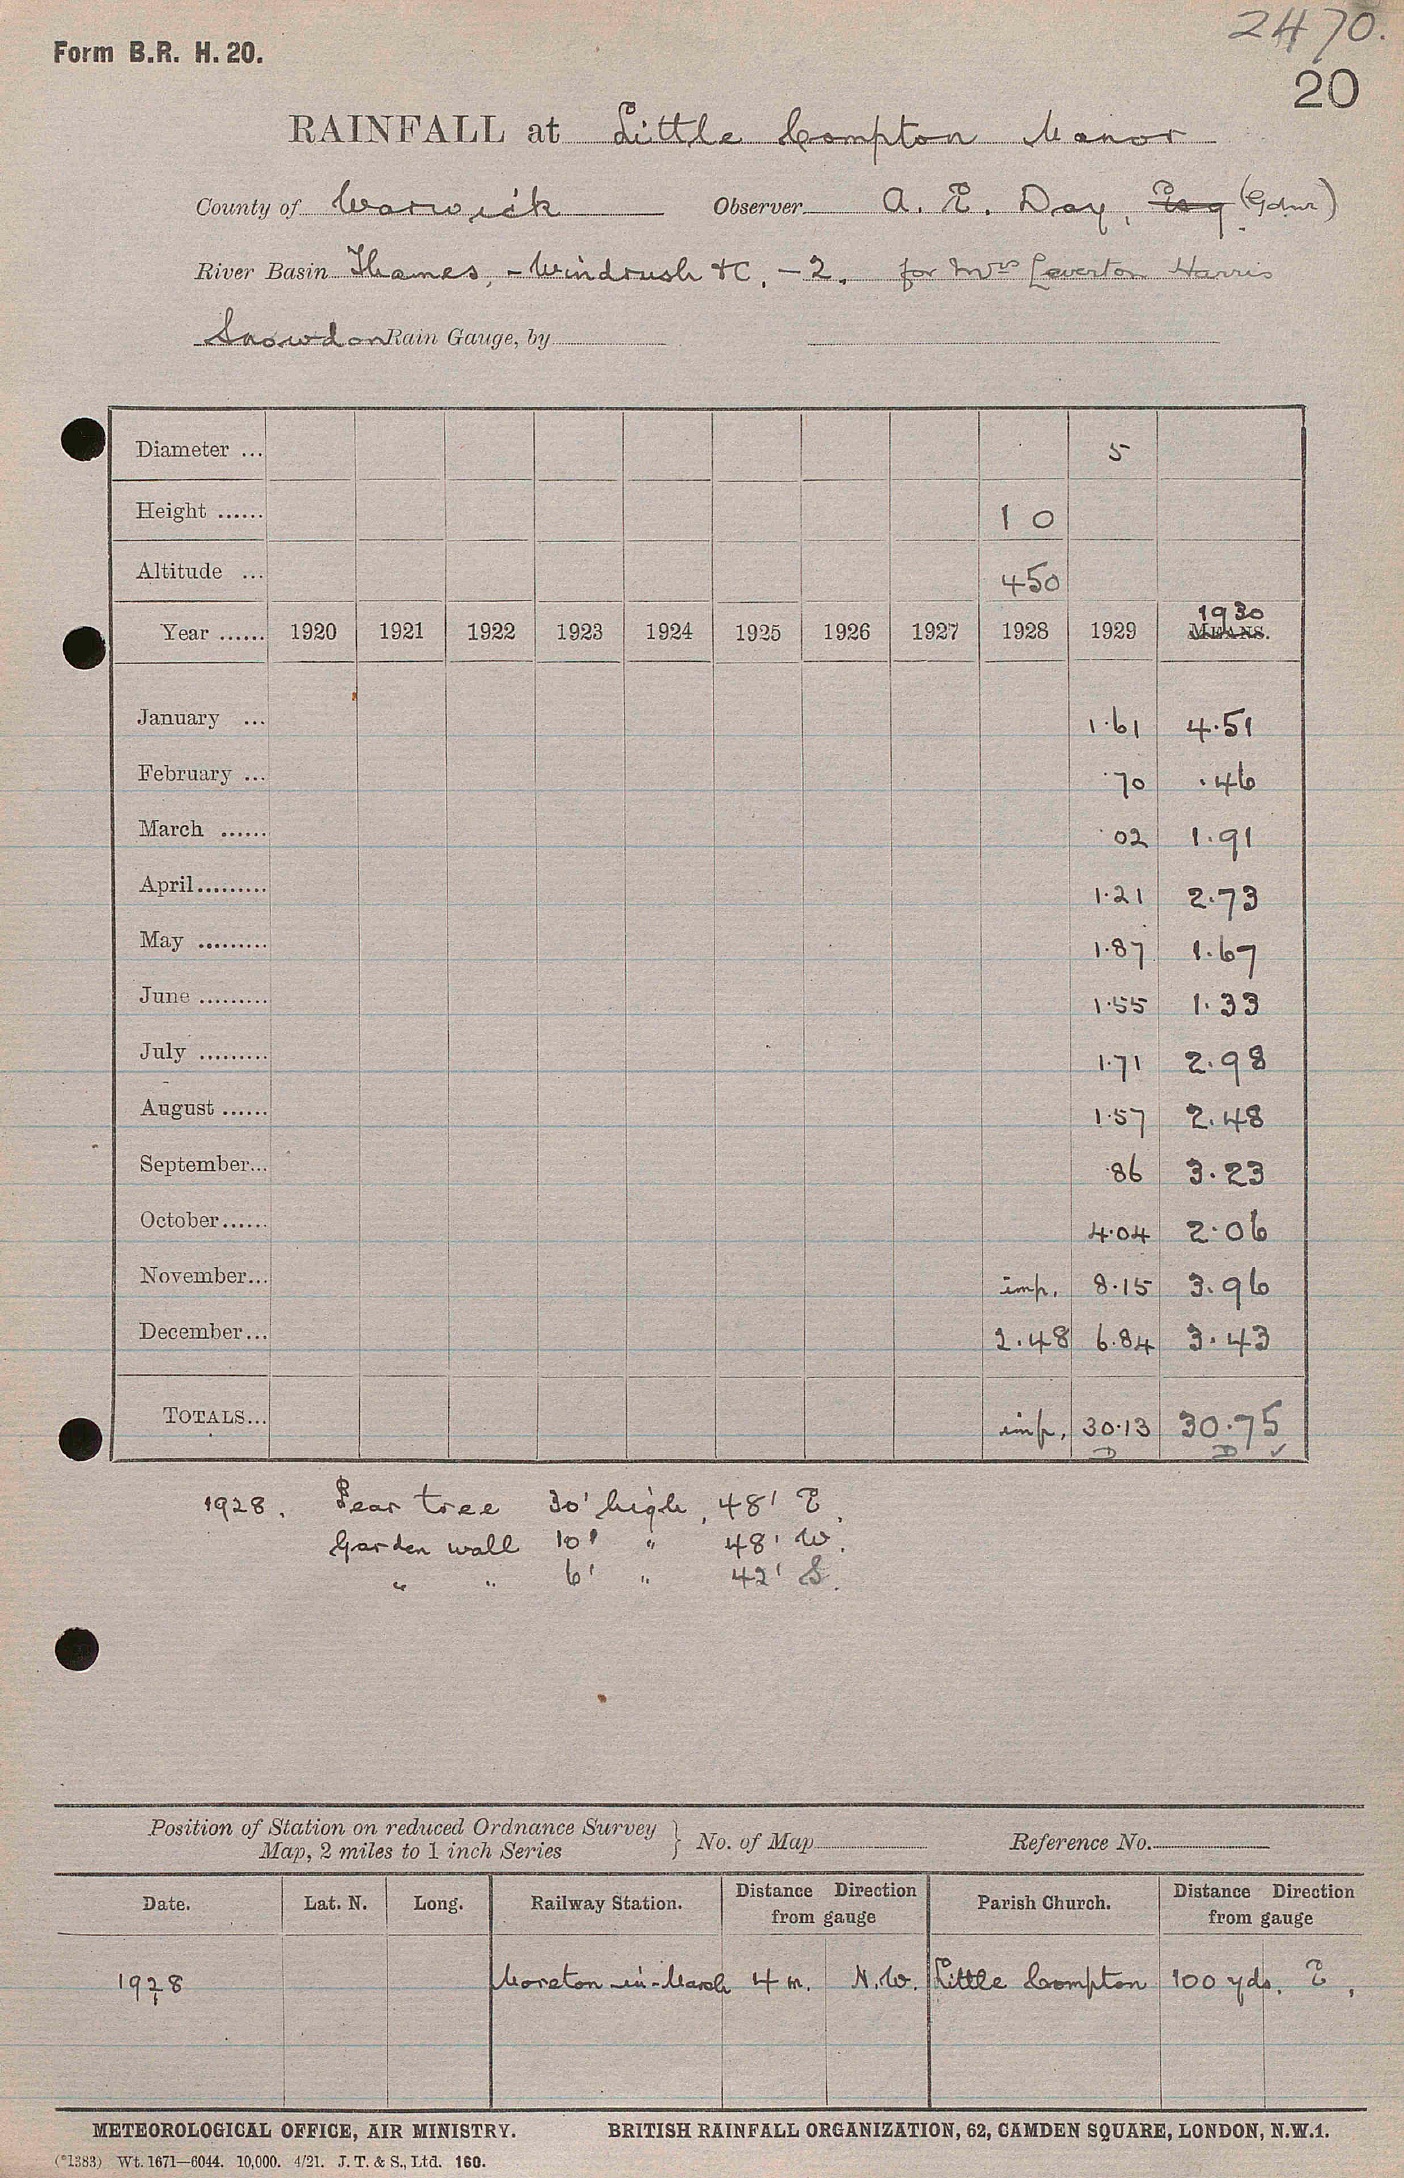 2470.
Form B.R. H. 20.
20
RAINFALL at Little Compton Manor
County of Warwick Observer A. E. Day, Esq (Gdnr)
River Basin Thames, - Windrush &c. - 2. for Mrs Leverton Harris
Snowdon Rain Gauge, by
Diameter ... 5
Height ...... 1 0
Altitude ... 450
1930
Year ...... 1920 1921 1922 1923 1924 1925 1926 1927 1928 1929 MEANS.
January ... 1.61 4.51
February ... .70 .46
March ...... .02 1.91
April......... 1.21 2.73
May ......... 1.87 1.67
June ......... 1.55 1.33
July ......... 1.71 2.98
August ...... 1.57 2.48
September... .86 3.23
October...... 4.04 2.06
November... imp. 8.15 3.96
December... 2.48 6.84 3.43
TOTALS... imp. 30.13 30.75
D D ✓
1928. Pear tree 30' high, 48' E.
Garden wall 10' " 48' W.
" " 6' " 42' S.
Position of Station on reduced Ordnance Survey
Map, 2 miles to 1 inch Series } No. of Map Reference No.
Date. Lat. N. Long. Railway Station. Distance Direction from gauge Parish Church. Distance Direction from gauge
1928 Moreton-in-Marsh 4 m. N.W. Little Compton 100 yds. E.
METEOROLOGICAL OFFICE, AIR MINISTRY. BRITISH RAINFALL ORGANIZATION, 62, CAMDEN SQUARE, LONDON, N.W.1.
(*1383) Wt. 1671—6044. 10,000. 4/21. J. T. & S., Ltd. 160.